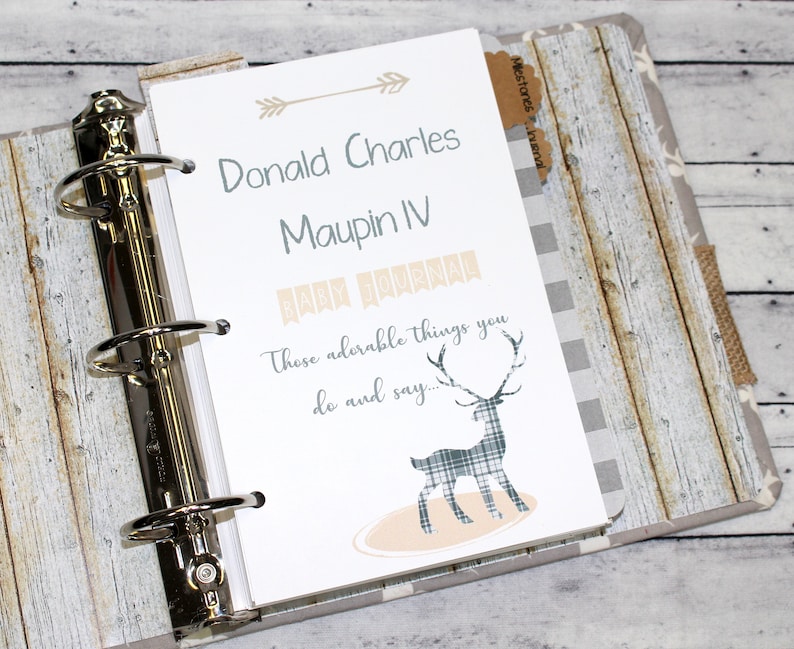 Donald Charles
Maupin IV
BABY JOURNAL
Those adorable things you
do and say...
Milestones
Journal